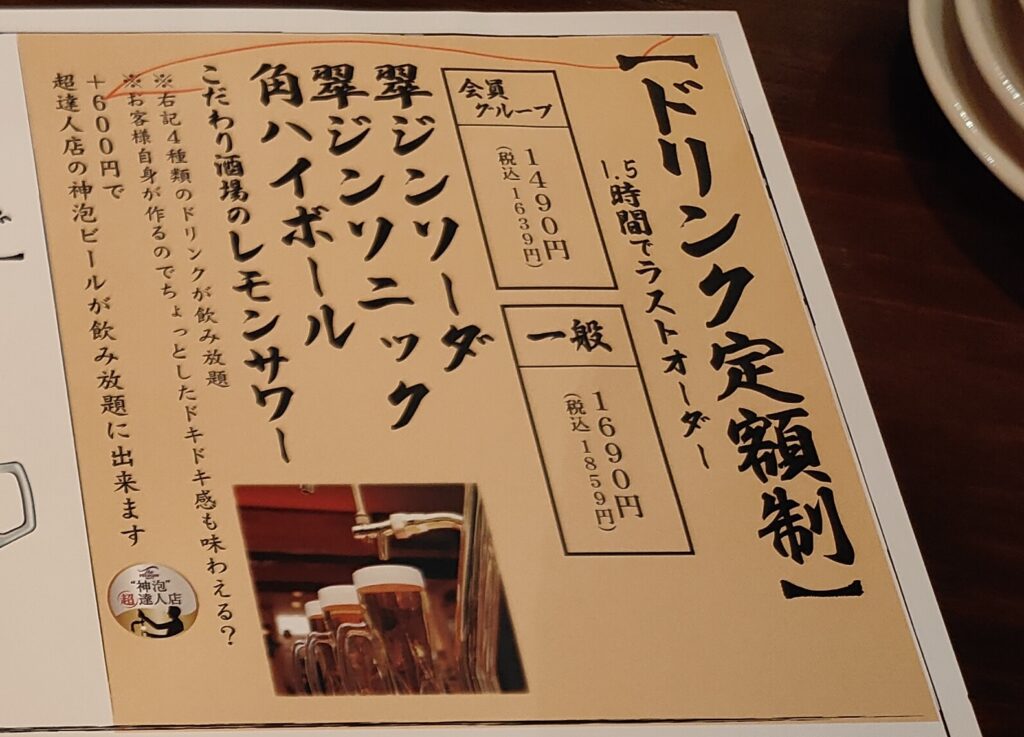 【ドリンク定額制】
1.5時間でラストオーダー
会員
グループ
1490円
(税込 1639円)
一般
1690円
(税込 1859円)
翠ジンソーダ
翠ジンソニック
角ハイボール
こだわり酒場のレモンサワー
※右記4種類のドリンクが飲み放題
※お客様自身が作るのでちょっとしたドキドキ感も味わえる?
+600円で
超達人店の神泡ビールが飲み放題に出来ます
"神泡"
超達人店